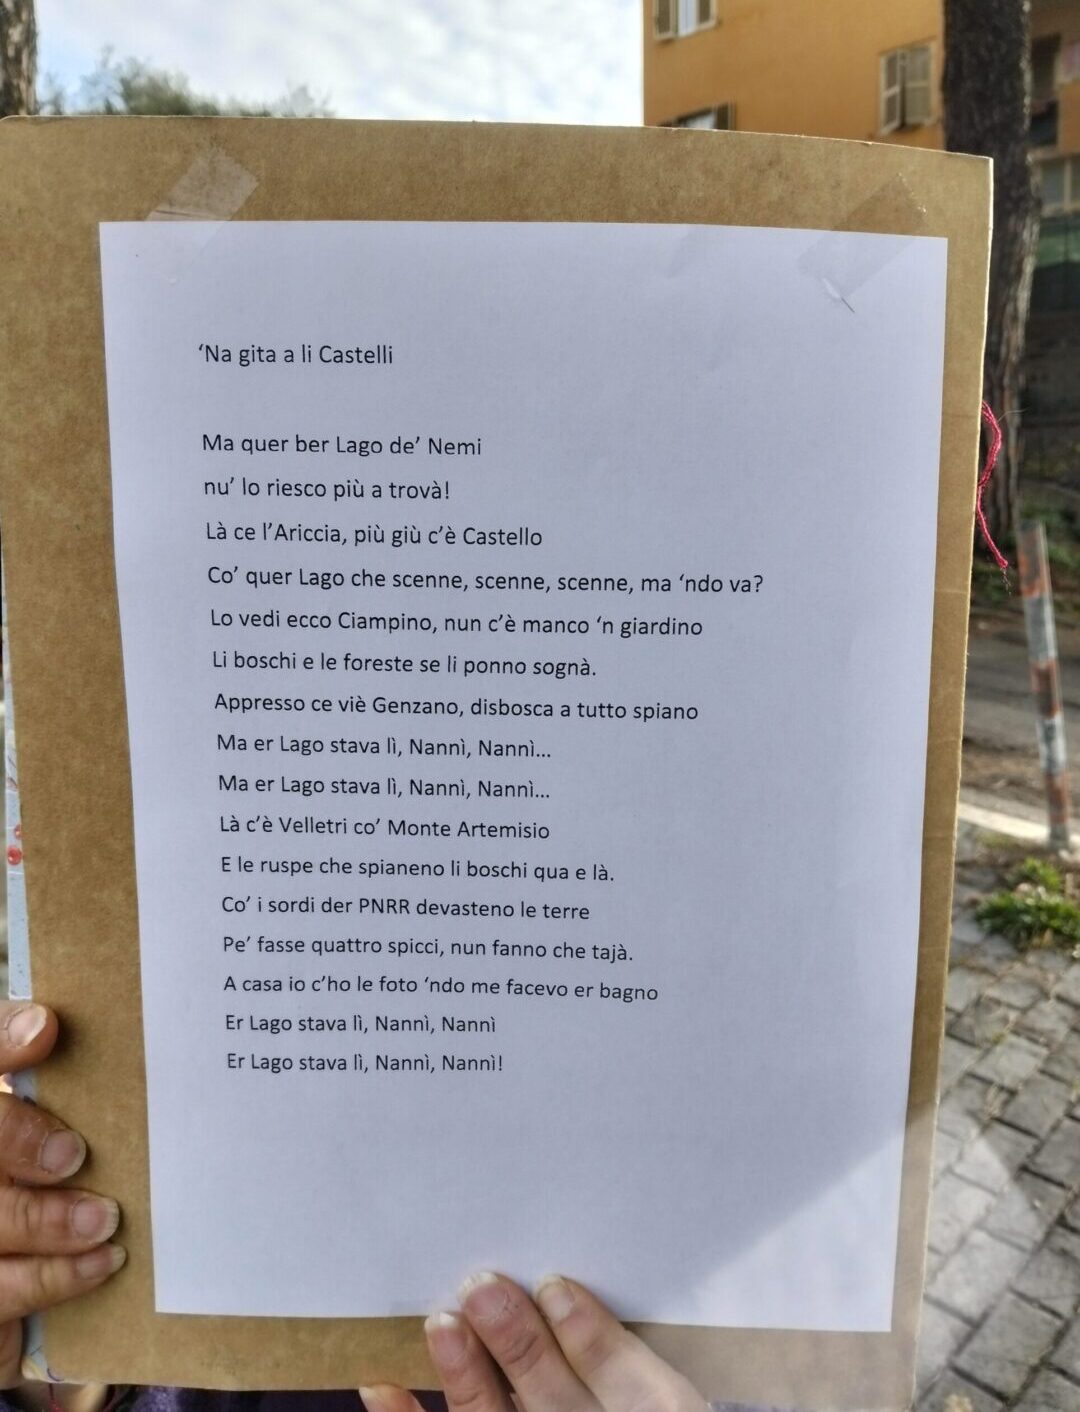 ‘Na gita a li Castelli
Ma quer ber Lago de’ Nemi
nu’ lo riesco più a trovà!
Là ce l’Ariccia, più giù c’è Castello
Co’ quer Lago che scenne, scenne, scenne, ma ‘ndo va?
Lo vedi ecco Ciampino, nun c’è manco ‘n giardino
Li boschi e le foreste se li ponno sognà.
Appresso ce viè Genzano, disbosca a tutto spiano
Ma er Lago stava lì, Nannì, Nannì...
Ma er Lago stava lì, Nannì, Nannì...
Là c’è Velletri co’ Monte Artemisio
E le ruspe che spianeno li boschi qua e là.
Co’ i sordi der PNRR devasteno le terre
Pe’ fasse quattro spicci, nun fanno che tajà.
A casa io c’ho le foto ‘ndo me facevo er bagno
Er Lago stava lì, Nannì, Nannì
Er Lago stava lì, Nannì, Nannì!